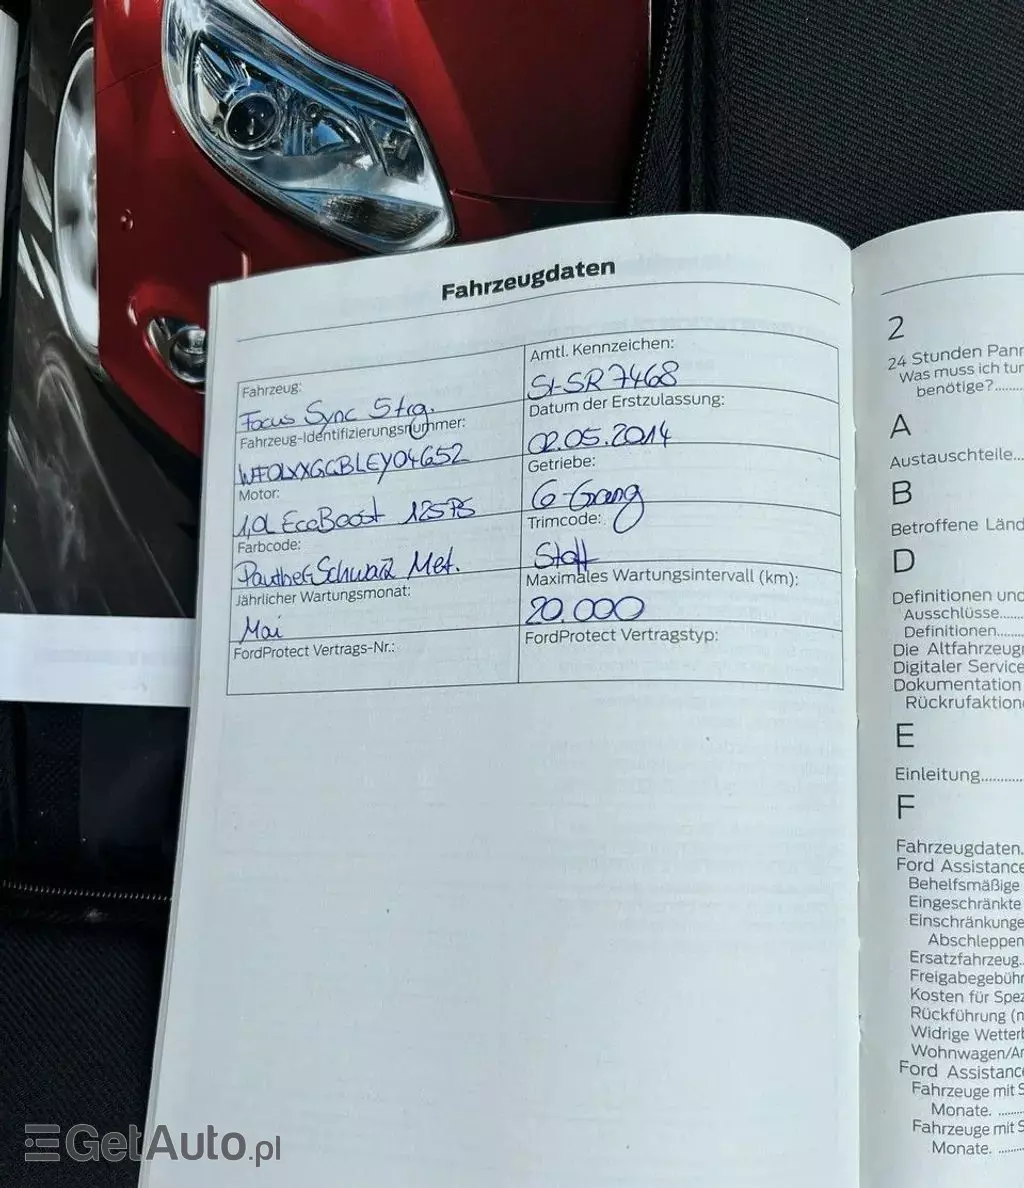 Fahrzeugdaten
Fahrzeug:
Focus Sync 5trg.
Amtl. Kennzeichen:
SI-SR 7468
Fahrzeug-Identifizierungsnummer:
WF0LXXGCBLEY04652
Datum der Erstzulassung:
02.05.2014
Motor:
1,0l EcoBoost 125PS
Getriebe:
6-Gang
Farbcode:
Panther Schwarz Met.
Trimcode:
Stoff
Jährlicher Wartungsmonat:
Mai
Maximales Wartungsintervall (km):
20.000
FordProtect Vertrags-Nr.:
FordProtect Vertragstyp:
2
24 Stunden Pann
Was muss ich tun
benötige?
A
Austauschteile...
B
Betroffene Länd
D
Definitionen und
Ausschlüsse......
Definitionen......
Die Altfahrzeuge
Digitaler Service
Dokumentation
Rückrufaktione
E
Einleitung............
F
Fahrzeugdaten.
Ford Assistance
Behelfsmäßige
Eingeschränkte
Einschränkunge
Abschleppen
Ersatzfahrzeug..
Freigabegebühr
Kosten für Spez
Rückführung (n
Widrige Wetterb
Wohnwagen/An
Ford Assistance
Fahrzeuge mit S
Monate. ......
Fahrzeuge mit S
Monate. ......
GetAuto.pl